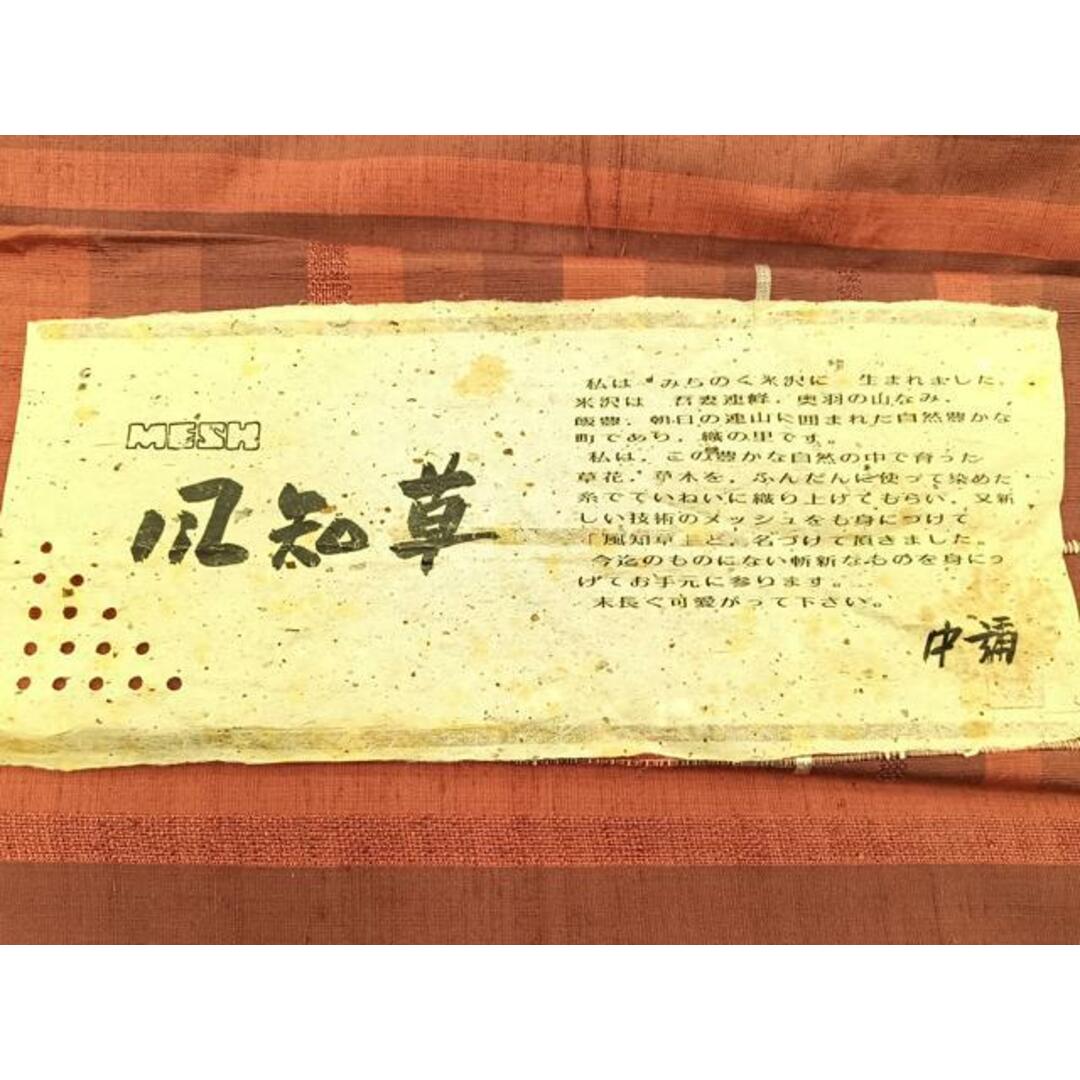 MESH
風知草
私は みちのく米沢に 生まれました。
米沢は 吾妻連峰，奥羽の山なみ，
飯豊，朝日の連山に囲まれた自然豊かな
町であり，織の里です。
私は，この豊かな自然の中で育った
草花，草木を，ふんだんに使って染めた
糸でていねいに織り上げてもらい，又新
しい技術のメッシュをも身につけて
「風知草」と，名づけて頂きました。
今迄のものにない斬新なものを身につ
けてお手元に参ります。
末長く可愛がって下さい。
中彌